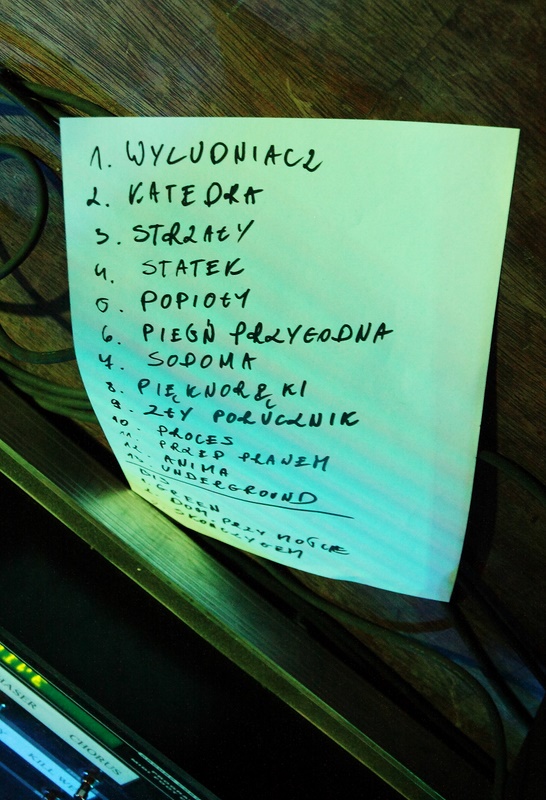 1. WYLUDNIACZ
2. KATEDRA
3. STRZAŁY
4. STATEK
5. POPIOŁY
6. PIEŚŃ PRZYGODNA
7. SODOMA
8. PIĘKNORĘKI
9. ZŁY PORUCZNIK
10. PROCES
11. PRZED PRANIEM
12. ANIMA
13. UNDERGROUND
BIS
1. GREEN
2. DOM PRZY MOŚCIE
CHORUS
KILL